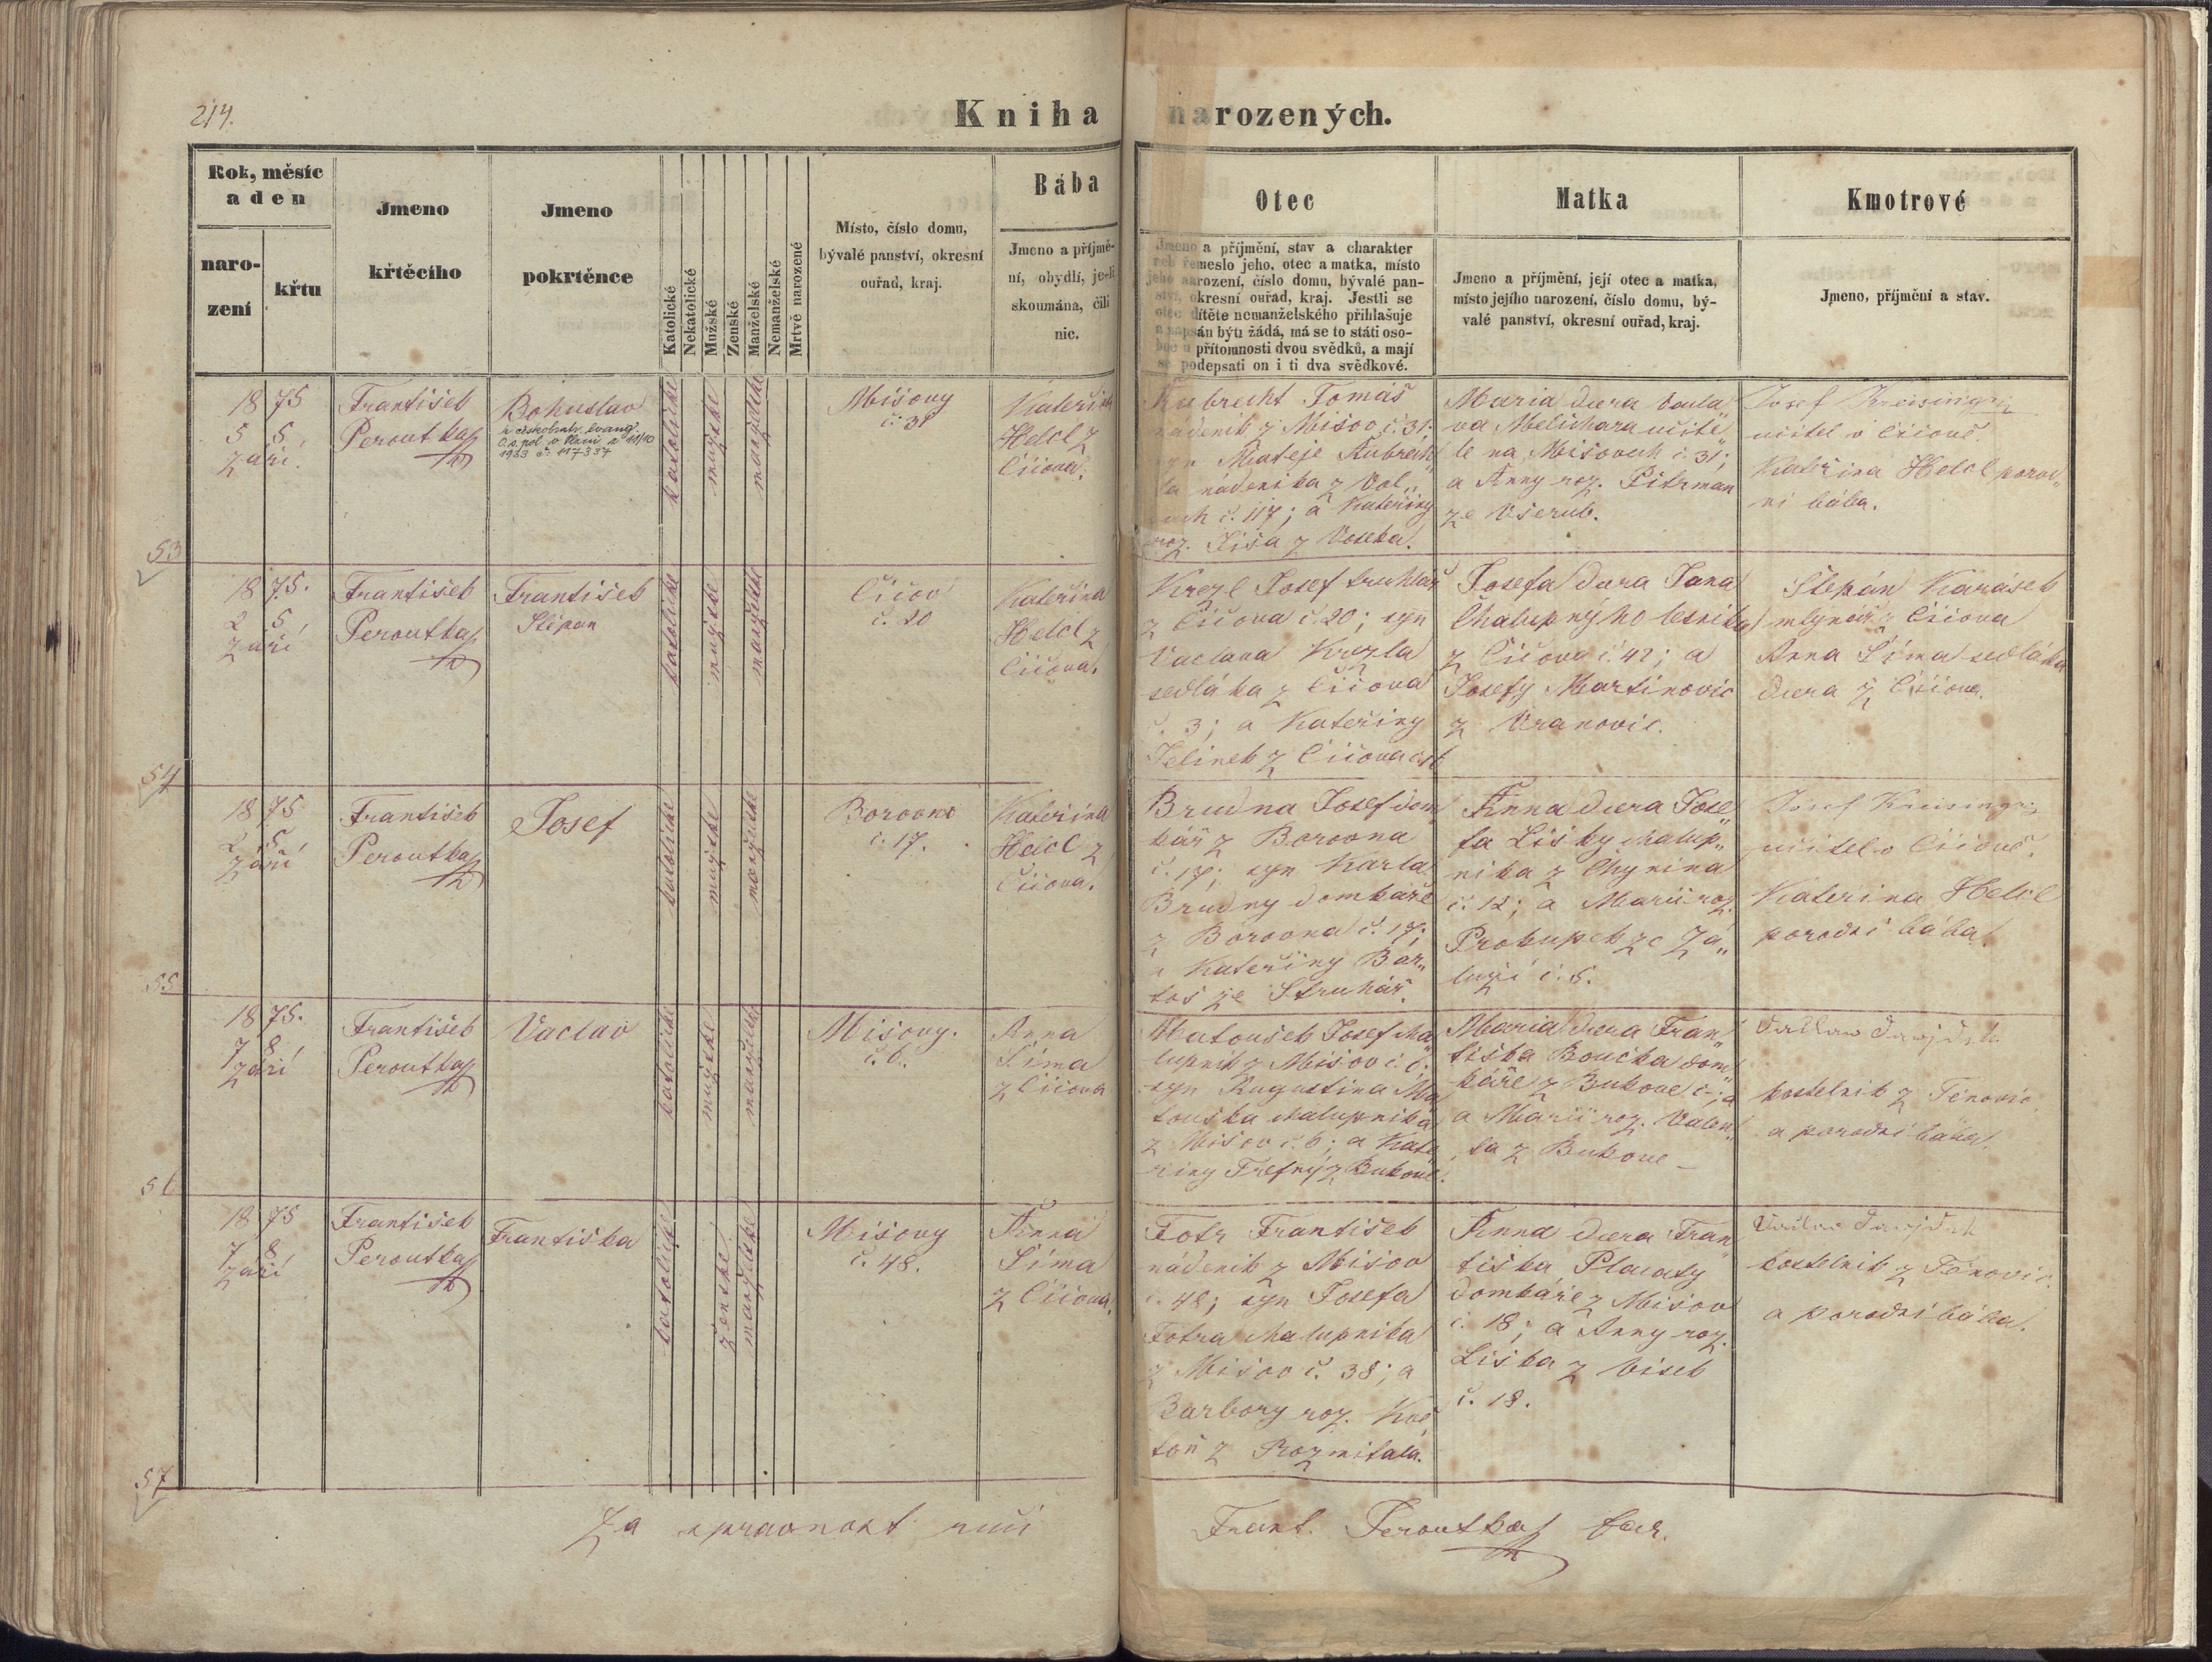 214.
Kniha narozených.
Rok, měsíc
a den
naro-
zení
křtu
Jmeno
křtěcího
Jmeno
pokrtěnce
Katolické
Nekatolické
Mužské
Ženské
Manželské
Nemanželské
Mrtvě narozené
Místo, číslo domu,
bývalé panství, okresní
ouřad, kraj.
Bába
Jmeno a příjmě-
ní, obydlí, je-li
skoumána, čili
nic.
Otec
Jmeno a příjmění, stav a charakter
neb řemeslo jeho, otec a matka, místo
jeho narození, číslo domu, bývalé pan-
ství, okresní ouřad, kraj. Jestli se
otec dítěte nemanželského přihlašuje
a zapsán býti žádá, má se to státi oso-
bně u přítomnosti dvou svědků, a mají
se podepsati on i ti dva svědkové.
Matka
Jmeno a příjmění, její otec a matka,
místo jejího narození, číslo domu, bý-
valé panství, okresní ouřad, kraj.
Kmotrové
Jmeno, příjmění a stav.
53
1875
5 5.
září
František
Peroutka
Bohuslav
k českobratr. evang.
1923 č. 117337
katolické
mužské
manželské
Mišovy
č. 31
Kateřina
Helcl z
Číčova.
Kubrecht Tomáš
nádeník z Mišov č. 31.
syn Matěje Kubrech„
ta nádeníka z Vol„
č. 117; a Kateřiny
roz. Jiša z Voseka.
Maria dcera Václa„
va Melichara učite„
le na Mišovech č. 31;
a Anny roz. Pitrman
ze Všerub.
Josef Kreisinger
učitel v Číčově.
Kateřina Helcl porod„
ní bába.
54
1875.
2 5.
září
František
Peroutka
František
Štěpan
katolické
mužské
manželské
Číčov
č. 20
Kateřina
Helcl z
Číčova.
Krezl Josef truhlář
z Číčova č. 20; syn
Vaclava Krezla
sedláka z Číčova
č. 3; a Kateřiny
Jelinek z Číčova
Josefa dcera Jana
Chalupnýho lesníka
z Číčova č. 42; a
Josefy Martinovic
z Vranovic.
Štěpán Karásek
mlynář z Číčova
Anna Šíma sedláka
dcera z Číčova.
55
1875
2 5
září
František
Peroutka
Josef
katolické
mužské
manželské
Borovno
č. 17.
Kateřina
Helcl z
Číčova.
Brudna Josef dom
kář z Borovna
č. 17; syn Karla
Brudny domkáře
z Borovna č. 17;
a Kateřiny Bar„
toš ze Struhář.
Anna dcera Jose„
fa Lišky chalup„
níka z Chynína
č. 12; a Marii roz.
Prokupek ze Zá„
luží č. 5.
Josef Kreisinger
učitel v Číčově.
Kateřina Helcl
porodní bába.
56
1875.
7 8.
září
František
Peroutka
Vaclav
katolické
mužské
manželské
Mišovy.
č. 6.
Anna
Šíma
z Číčova
Matoušek Josef cha„
lupník z Mišov č. 6.
syn Augustina Ma
touška chalupníka
z Mišov č. 6; a Kate
řiny Trefný z Bukové.
Maria dcera Fran„
tiška Boučka dom
káře z Bukové č. –;
a Marii roz. Valen„
ta z Bukove –
kostelník z Těnovic
a porodní bába.
57
1875
7 8.
září
František
Peroutka
Františka
katolické
ženské
manželské
Mišovy
č. 48.
Anna
Šíma
z Číčova.
Fotr František
nádeník z Mišov
č. 48; syn Josefa
Fotra chalupníka
z Mišov č. 38; a
Barbory roz.
z Rozmitala.
Anna dcera Fran„
tiška Placaty
domkáře z Mišov
č. 18; a Anny roz.
Liška z Vísek
č. 18.
kostelník z Těnovic.
a porodní bába.
Za spravnost ručí
Frant. Peroutka far.